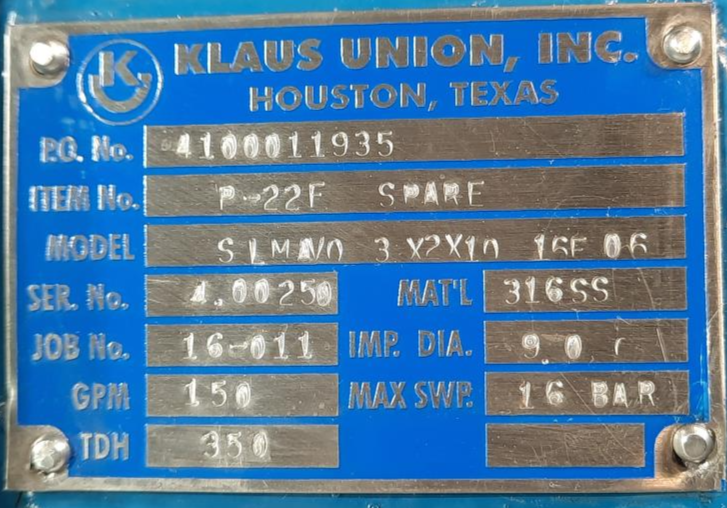 K
KLAUS UNION, INC.
HOUSTON, TEXAS
P.O. No. 4100011935
ITEM No. P-22F SPARE
MODEL SLMAVO 3X2X10 16E06
SER. No. 4.00250 MAT'L 316SS
JOB No. 16-011 IMP. DIA. 9.0
GPM 150 MAX SWP. 16 BAR
TDH 350